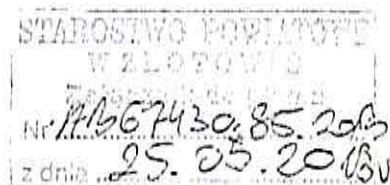 STAROSTWO POWIATOWE
W ZŁOTOWIE
Nr AB.6743.0.85.2013
z dnia 25.03.2013